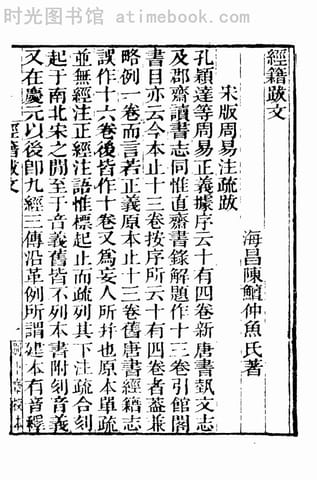 时光图书馆 www.timelibrary.cn
經籍跋文
海昌陳鱣仲魚氏著
宋版周易注疏跋
孔穎達等周易正義據序云十有四卷新唐書藝文志
及郡齋讀書志同惟直齋書錄解題作十三卷引館閣
書目亦云今本止十三卷按序所云十有四卷者葢兼
略例一卷而言若正義原本止十三卷舊唐書經籍志
誤作十六卷後皆作十卷又爲妄人所幷也原本單疏
並無經注正經注語惟標起止而疏列其下注疏合刻
起于南北宋之閒至于音義舊皆不列本書附刻音義
又在慶元以後卽九經三傳沿革例所謂建本有音釋
經籍跋文